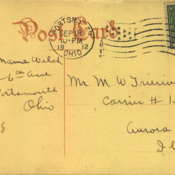 Post Card
PORTSMOUTH
SEP 18
PM
12
OHIO
Mame Welch
6th Ave
Portsmouth
Ohio
Mr. M W
Carrier #
Aurora